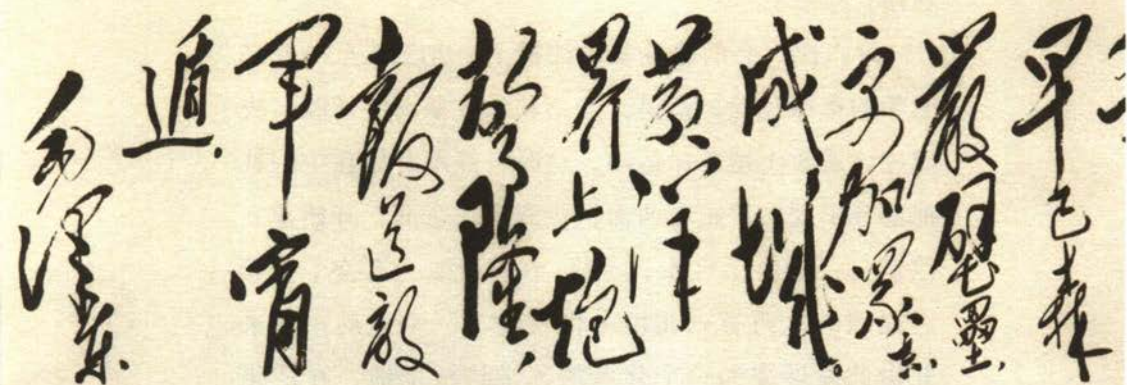 早已森
嚴壁壘，
更加眾志
成城。
黄洋
界上炮
聲隆，
報道敵
軍宵
遁．
毛澤東